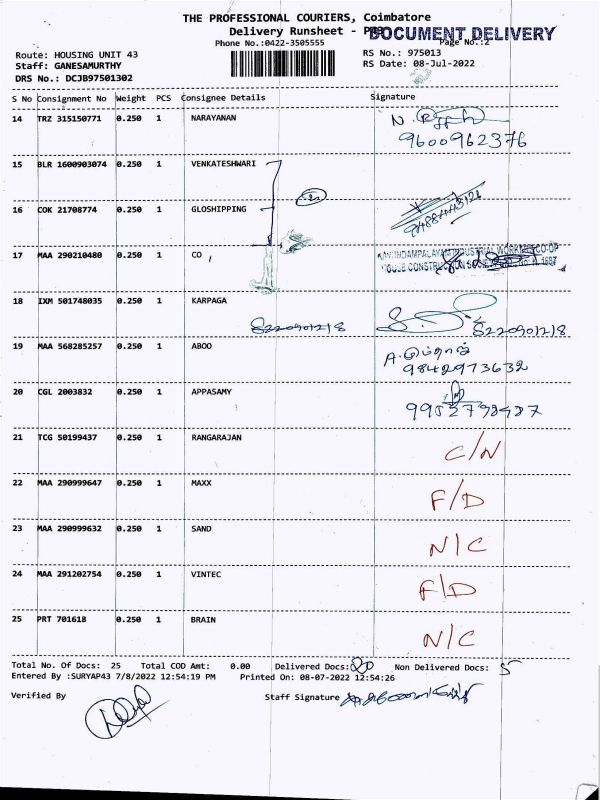 THE PROFESSIONAL COURIERS, Coimbatore
Delivery Runsheet -
DOCUMENT DELIVERY
Phone No.:0422-3505555
Page No.:2
Route: HOUSING UNIT 43
RS No.: 975013
Staff: GANESAMURTHY
RS Date: 08-Jul-2022
DRS No.: DCJB97501302
S No Consignment No Weight PCS Consignee Details Signature
14 TRZ 315150771 0.250 1 NARAYANAN N.
9600962376
15 BLR 1600903074 0.250 1 VENKATESHWARI
16 COK 21708774 0.250 1 GLOSHIPPING
17 MAA 290210480 0.250 1 CO
18 IXM 501748035 0.250 1 KARPAGA
8220901218 8220901218
19 MAA 568285257 0.250 1 ABOO A.
9842973632
20 CGL 2003832 0.250 1 APPASAMY
21 TCG 50199437 0.250 1 RANGARAJAN C/N
22 MAA 290999647 0.250 1 MAXX F/D
23 MAA 290999632 0.250 1 SAND N/C
24 MAA 291202754 0.250 1 VINTEC F/D
25 PRT 701618 0.250 1 BRAIN N/C
Total No. Of Docs: 25 Total COD Amt: 0.00 Delivered Docs: 20 Non Delivered Docs: 5
Entered By :SURYAP43 7/8/2022 12:54:19 PM Printed On: 08-07-2022 12:54:26
Verified By Staff Signature